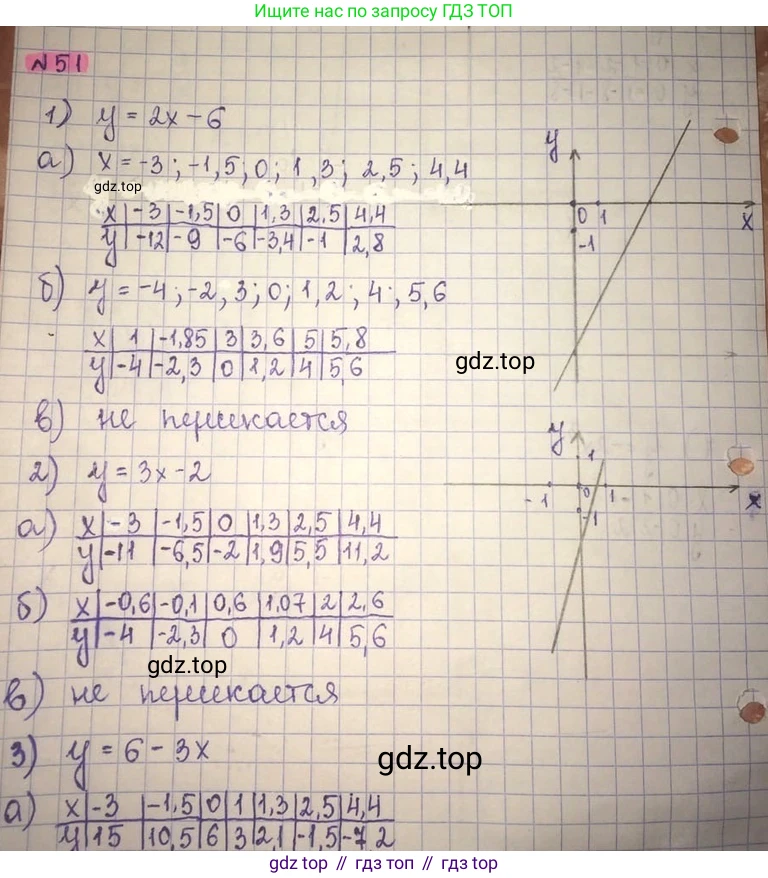 Ищите нас по запросу ГДЗ ТОП
№51
1) y = 2x - 6
а) x = -3; -1,5; 0; 1,3; 2,5; 4,4
gdz.top
x -3 -1,5 0 1,3 2,5 4,4
y -12 -9 -6 -3,4 -1 2,8
б) y = -4; -2,3; 0; 1,2; 4; 5,6
x 1 -1,85 3 3,6 5 5,8
y -4 -2,3 0 1,2 4 5,6
в) не пересекается
2) y = 3x - 2
а) x -3 -1,5 0 1,3 2,5 4,4
y -11 -6,5 -2 1,9 5,5 11,2
б) x -0,6 -0,1 0,6 1,07 2 2,6
y -4 -2,3 0 1,2 4 5,6
gdz.top
в) не пересекается
3) y = 6 - 3x
а) x -3 -1,5 0 1 1,3 2,5 4,4
y 15 10,5 6 3 2,1 -1,5 -7 2
y
0 1 x
-1
gdz.top
y
1
-1 0 1 x
-1
gdz.top
gdz top // гдз топ // gdz top